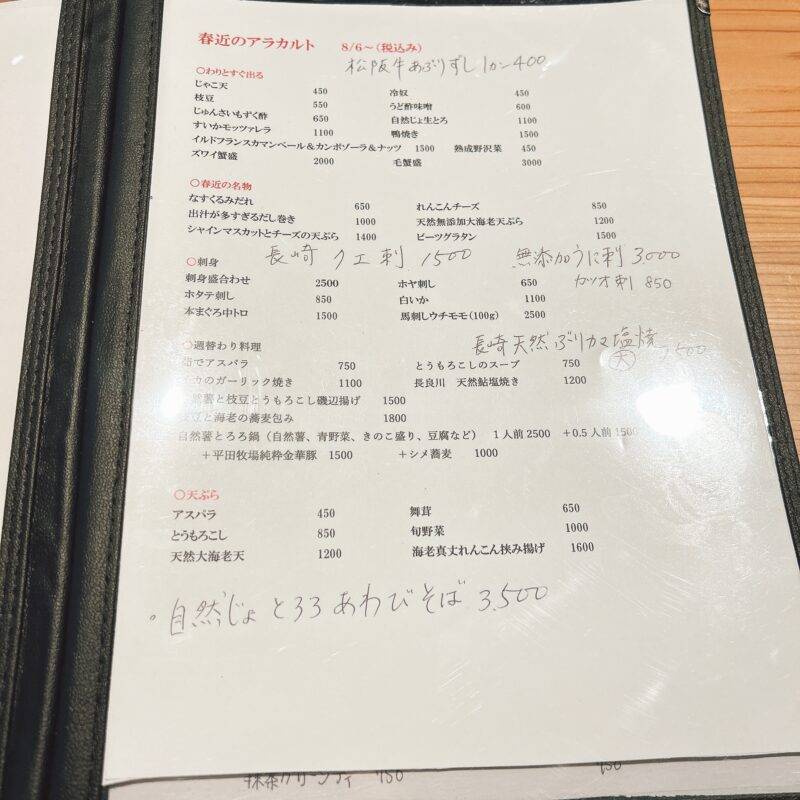 春近のアラカルト 8/6～(税込み)
松阪牛あぶりずし 1カン 400
○わりとすぐ出る
じゃこ天 450 冷奴 450
枝豆 550 うど酢味噌 600
じゅんさいもずく酢 650 自然じょ生とろ 1100
すいかモッツァレラ 1100 鴨焼き 1500
イルドフランスカマンベール＆カンボゾーラ＆ナッツ 1500 熟成野沢菜 450
ズワイ蟹盛 2000 毛蟹盛 3000
○春近の名物
なすくるみだれ 650 れんこんチーズ 850
出汁が多すぎるだし巻き 1000 天然無添加大海老天ぷら 1200
シャインマスカットとチーズの天ぷら 1400 ビーツグラタン 1500
長崎 クエ刺 1500 無添加うに刺 3000
○刺身
カツオ刺 850
刺身盛合わせ 2500 ホヤ刺し 650
ホタテ刺し 850 白いか 1100
本まぐろ中トロ 1500 馬刺しウチモモ（100g） 2500
長崎天然ぶりカマ塩焼
大 500
○週替わり料理
茹でアスパラ 750 とうもろこしのスープ 750
カのガーリック焼き 1100 長良川 天然鮎塩焼き 1200
然薯と枝豆とうもろこし磯辺揚げ 1500
豆と海老の蕎麦包み 1800
自然薯とろろ鍋（自然薯、青野菜、きのこ盛り、豆腐など） 1人前2500 ＋0.5人前1500
＋平田牧場純粋金華豚 1500 ＋シメ蕎麦 1000
○天ぷら
アスパラ 450 舞茸 650
とうもろこし 850 旬野菜 1000
天然大海老天 1200 海老真丈れんこん挟み揚げ 1600
。自然じょ とろろ あわびそば 3,500
抹茶グリーンティ 750